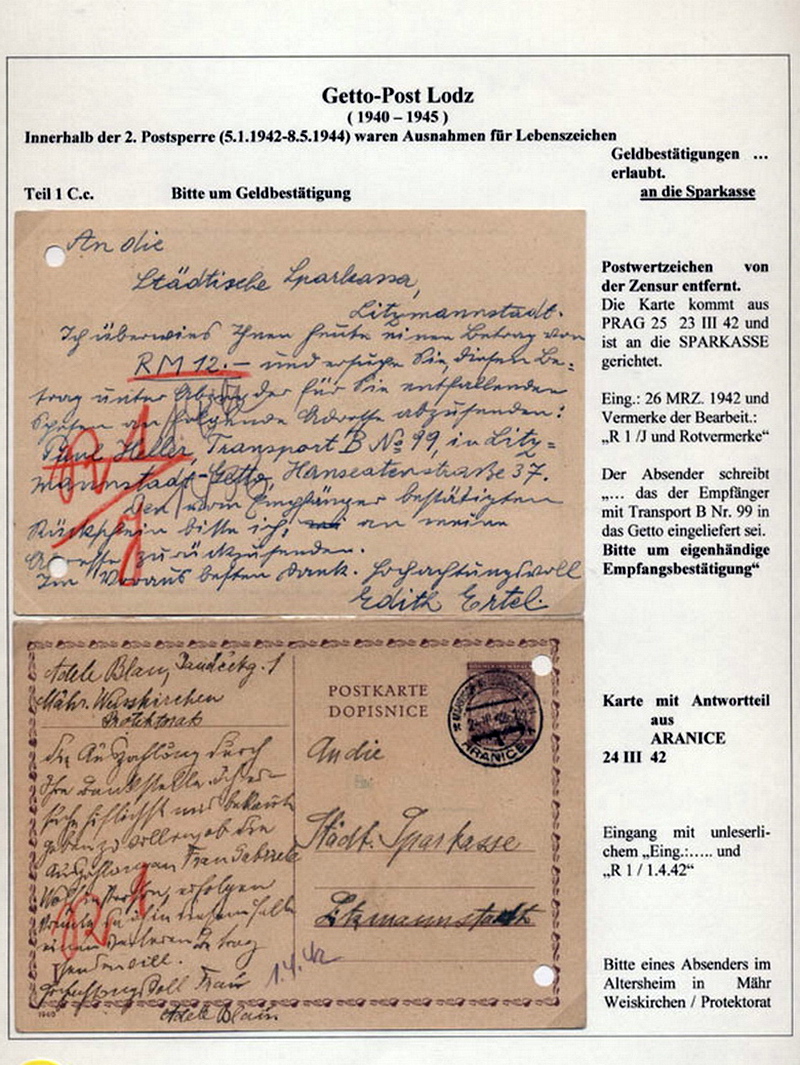 Getto-Post Lodz
( 1940 – 1945 )
Innerhalb der 2. Postsperre (5.1.1942-8.5.1944) waren Ausnahmen für Lebenszeichen
Geldbestätigungen ...
erlaubt.
Teil 1 C.c. Bitte um Geldbestätigung an die Sparkasse
An die
Städtische Sparkassa,
Litzmannstadt.
Ich überwies Ihnen heute einen Betrag von
RM 12.– und ersuche Sie, diesen Be=
trag unter Abzug der für Sie entfallenden
Spesen an folgende Adresse abzusenden:
Paul Heller, Transport B No 99, in Litz=
mannstadt-Getto, Hanseatenstraße 37.
Den vom Empfänger bestätigten
Rückschein bitte ich, an meine
Adresse zurückzusenden.
Im Voraus besten Dank. Hochachtungsvoll
Edith Ertel.
R1
J
Postwertzeichen von
der Zensur entfernt.
Die Karte kommt aus
PRAG 25 23 III 42 und
ist an die SPARKASSE
gerichtet.
Eing.: 26 MRZ. 1942 und
Vermerke der Bearbeit.:
„R 1 /J und Rotvermerke“
Der Absender schreibt
„... das der Empfänger
mit Transport B Nr. 99 in
das Getto eingeliefert sei.
Bitte um eigenhändige
Empfangsbestätigung“
Adele Blau,
Mähr. Weisskirchen
Protektorat
die Auszahlung durch
Ihre
bekannt
geben zu wollen, ob die
Auszahlung an Frau Gabriele
erfolgen
in diesem Falle
einen weiteren Betrag
senden will.
Hochachtungsvoll Frau
Adele Blau
R1
1940
POSTKARTE
DOPISNICE
ARANICE
An die
Städt. Sparkasse
Litzmannstadt
1.4.42
Karte mit Antwortteil
aus
ARANICE
24 III 42
Eingang mit unleserli-
chem „Eing.:..... und
„R 1 / 1.4.42“
Bitte eines Absenders im
Altersheim in Mähr
Weiskirchen / Protektorat